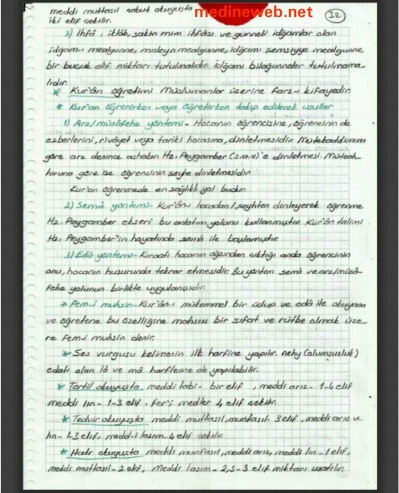 meddi muttasıl sabut okuyuşta
iki elif çekilir.
medineweb.net
32
3) İhfâ, iklâb, sakin mim ihfâsı ve gunneli idğamlar olan
idgam-ı mealgunne, misleyn mealgunne, idğamı şemsiyye mealgunne,
bir buçuk elif miktarı tutulmalıdır. İdğamı bilağunneler tutulmama-
lıdır.
* Kur'ân öğretimi Müslümanlar üzerine farz-ı kifayedir
* Kur'an öğrenirken veya öğretirken takip edilecek usuller
1) Arz/müşâfehe yöntemi- Hocanın öğrencisine, öğrencinin de
ezberlerini, rivâyet veya tariki hocasına, dinletmesidir. Mütekaddimuna
göre arz denince ashabın Hz. Peygamber (s.a.v)'e dinletmesi. Müteah-
hiruna göre ise öğrencinin şeyhe dinletmesidir
Kur'an öğrenmede en sağlıklı yol budur.
2) Semâ yöntemi- Kur'ânı hocadan/şeyhten dinleyerek öğrenme
Hz. Peygamber ekseri bu anlatım yolunu kullanmıştır. Kur'ân talimi
Hz. Peygamber'in hayatında semâ ile başlamıştır
3) Edâ yöntemi- Kıraatı hocanın ağzından çıktığı anda öğrencinin
onu, hocanın huzurunda tekrar etmesidir. Bu yöntem semâ ve arz/müşâ-
fehe yolunun birlikte uygulanışıdır.
* Fem-i muhsin- Kur'ân-ı mükemmel bir üslup ve edâ ile okuyana
ve öğretene bu özelliğine mahsus bir sıfat ve rütbe olmak üze-
re fem-i muhsin denir.
* Ses vurgusu kelimenin ilk harfine yapılır. nehy (olumsuzluk)
edatı olan lâ ve mâ harflerine de yapılabilir.
* Tertil okuyuşta meddi tabi- bir elif, meddi arız - 1-4 elif
meddi lin - 1-3 elif, fer'i medler 4 elif çekilir.
* Tedvir okuyuşta meddi muttasıl, munfasıl- 3 elif, meddi arız ve
lin- 1-3 elif, medd-i lazım- 4 elif çekilir
* Hadr okuyuşta meddi munfasıl, meddi arız, meddi lin - 1 elif,
meddi muttasıl - 2 elif, meddi lazım - 2,5-3 elif miktarı uzatılır.